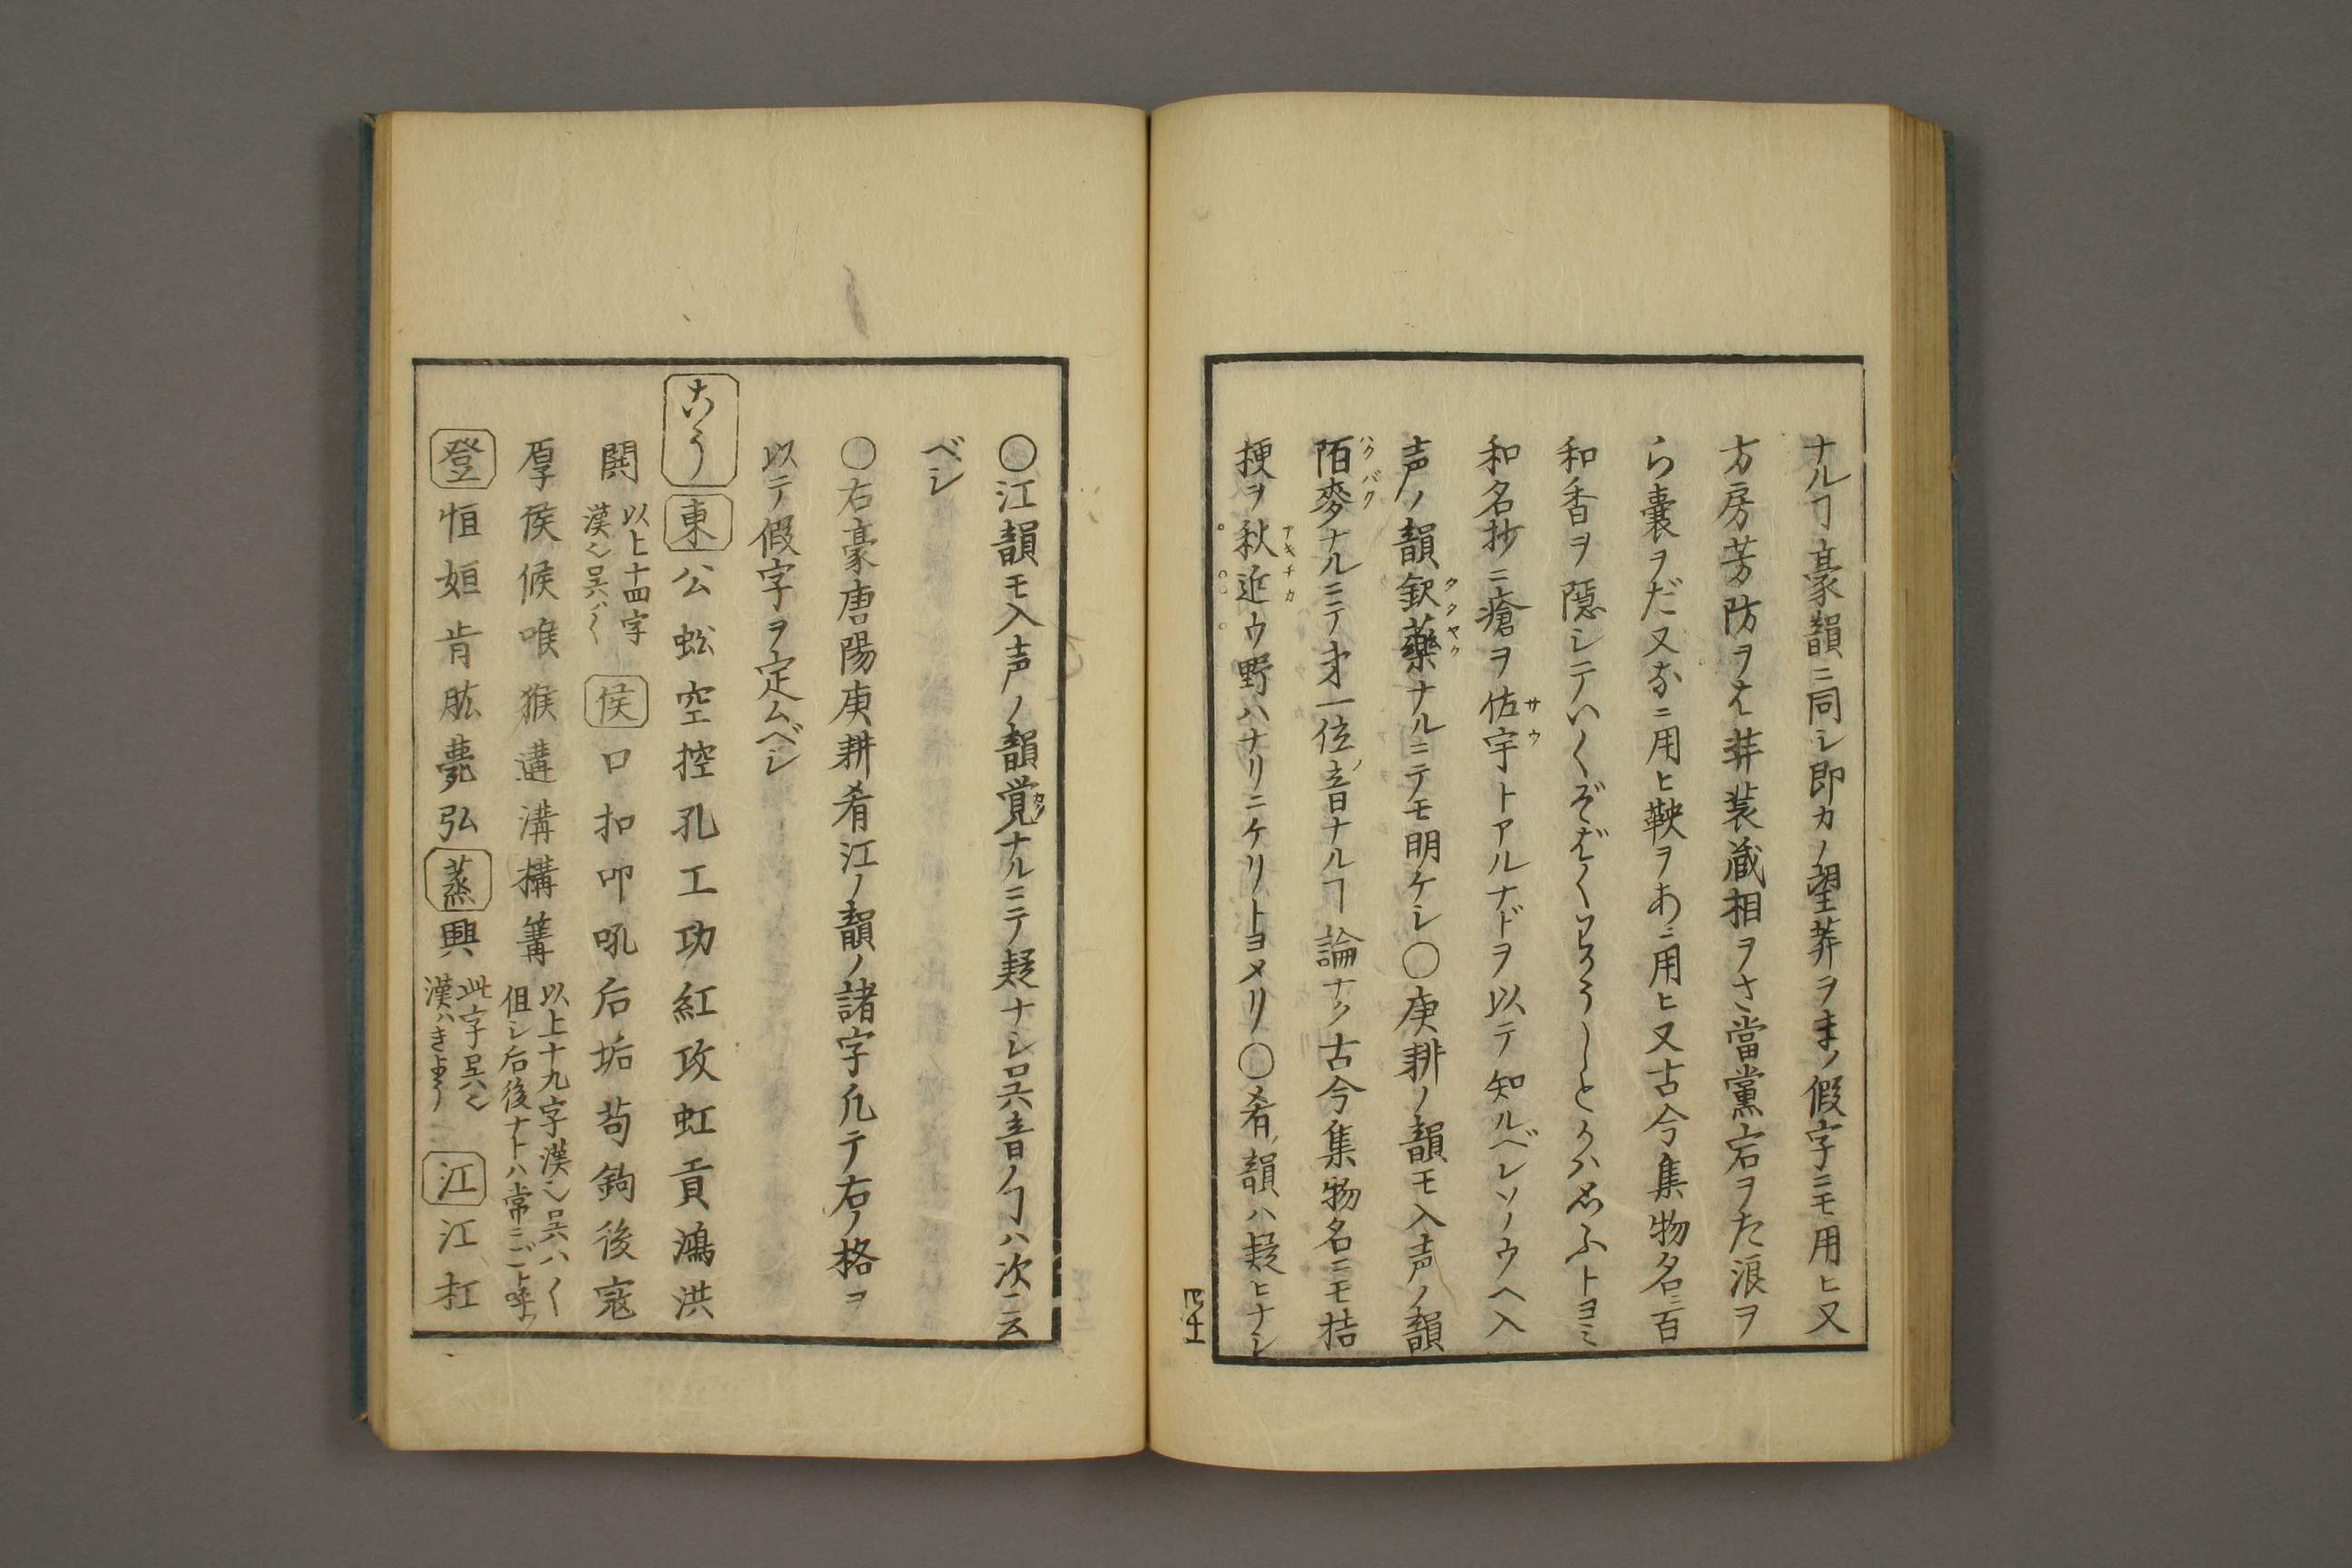 ナルヿ豪韻ニ同シ即カノ望莽ヲまノ假字ニモ用ヒ又
方房芳防ヲは莽装蔵相ヲさ當黨宕ヲた浪ヲ
ら囊ヲだ又なニ用ヒ鞅ヲあニ用ヒ又古今集物名ニ百
和香ヲ隠シテいく
和名抄ニ瘡ヲ佐宇トアルナドヲ以テ知ルベレソノウヘ入
サウ
声ノ韻欽藥ナルニテモ明ケシ〇庚耕ノ韻モ入声ノ韻
タクヤク
陌麥ナルニテ才一位ノ音ナルヿ論ナク古今集物名ニモ桔
ハクバク
梗ヲ秋近ウ野ハナリニケリトヨメリ〇肴ノ韻ハ疑ヒナシ
アキチカ
四十一
〇江韻モ入声ノ韻覚ナルニテ疑ナシ呉音ノヿハ次ニ云
カク
ベシ
〇右豪唐陽庚耕肴江ノ韻ノ諸字凡テ右ノ格ヲ
以テ假字ヲ定ムベシ
こう 東 公蚣空控孔工功紅攻虹貢鴻洪
鬨 以上十四字
漢 呉
侯 口扣叩吼后垢苟鉤後寇
厚侯候喉猴遘溝構篝 以上十九字漢 呉ハく
但シ后後ナトハ常ニごト呼フ
登 恒姮肯肱薨弘 蒸 興 此字呉ハ
漢ハきよう
江 江杠